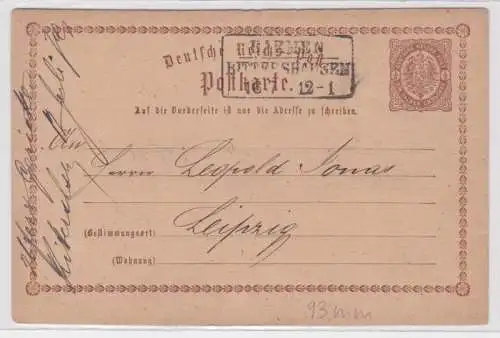 Deutsche Reichs-Post
BARMEN
RITTERSHAUSEN
12-1
Postkarte.
Auf die Vorderseite ist nur die Adresse zu schreiben.
An
Herrn Leopold Jonas
Leipzig
(Bestimmungsort)
(Wohnung)
93 mm